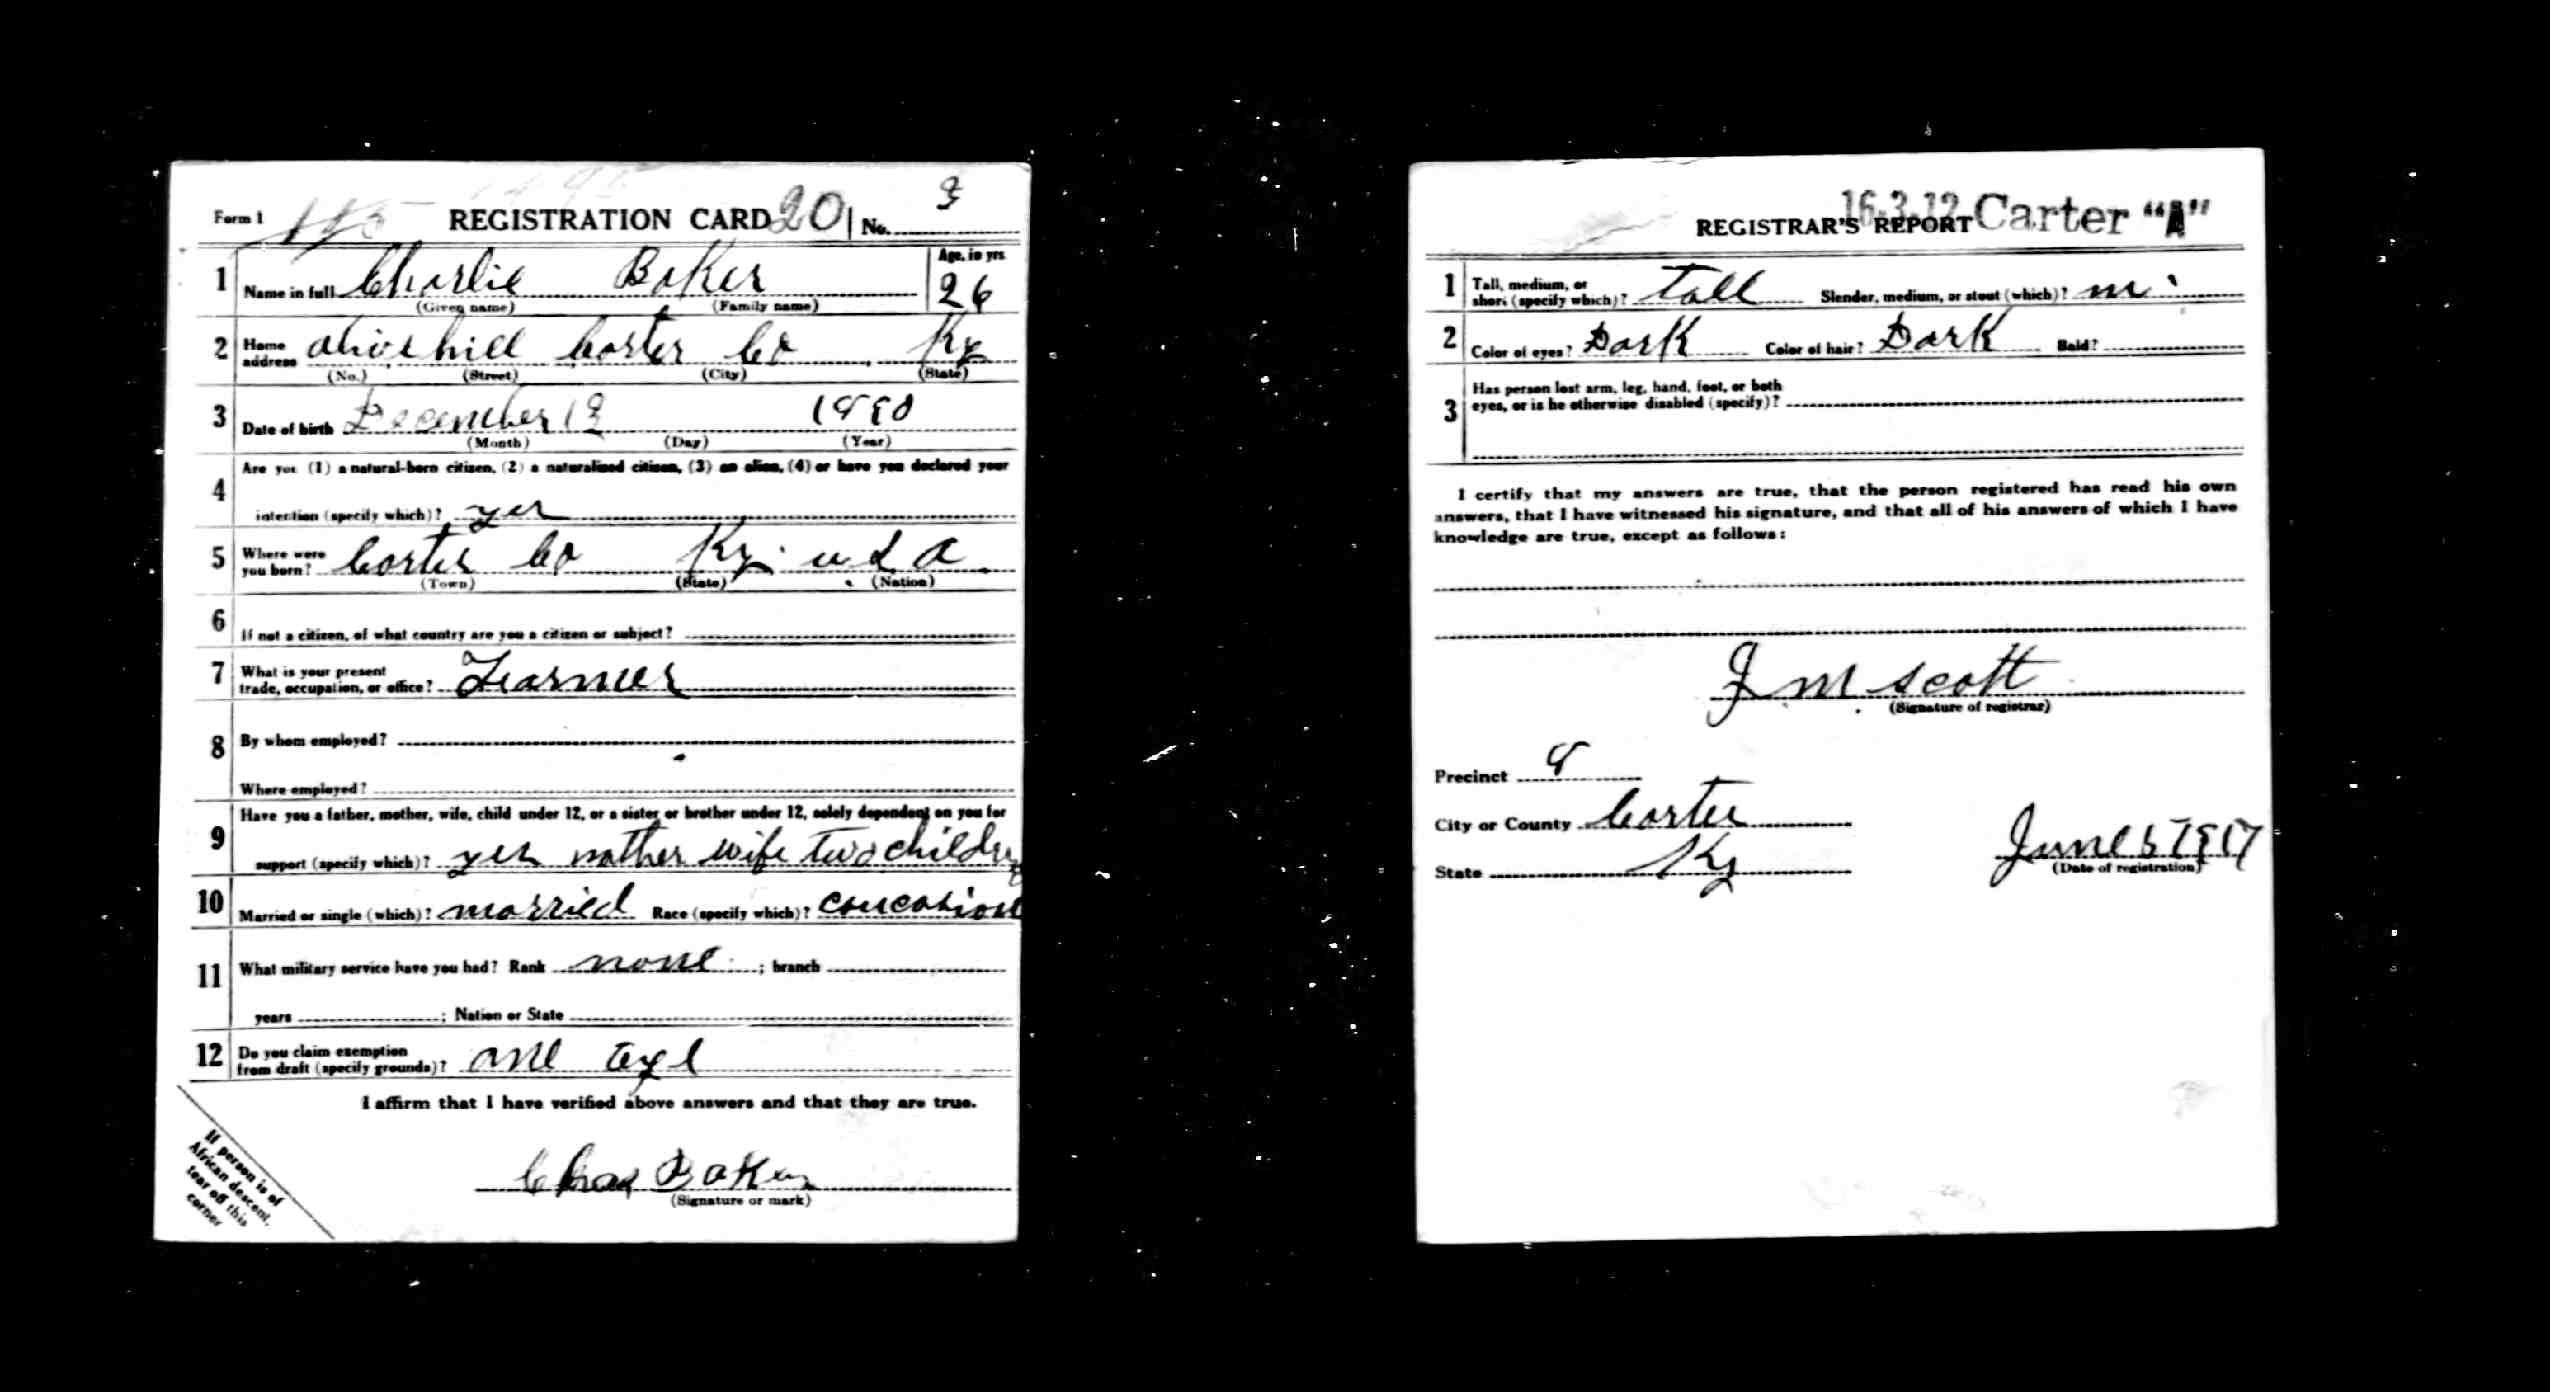 Form 1 REGISTRATION CARD 201 No. 3
1 Name in full Charlie Baker Age, in yrs 26
(Given name) (Family name)
2 Home address olive hill Carter Co Ky
(No.) (Street) (City) (State)
3 Date of birth December 1890
(Month) (Day) (Year)
4 Are you (1) a natural-born citizen, (2) a naturalized citizen, (3) an alien, (4) or have you declared your
intention (specify which)? yes
5 Where were you born? Carter Co Ky. u S a
(Town) (State) (Nation)
6 If not a citizen, of what country are you a citizen or subject?
7 What is your present
trade, occupation, or office? Farmer
8 By whom employed?
Where employed?
9 Have you a father, mother, wife, child under 12, or a sister or brother under 12, solely dependent on you for
support (specify which)? yes mother wife two children
10 Married or single (which)? married Race (specify which)?
11 What military service have you had? Rank none ; branch
years ; Nation or State
12 Do you claim exemption
from draft (specify grounds)?
I affirm that I have verified above answers and that they are true.
Chas Baker
(Signature or mark)
If person is of
African descent,
tear off this
corner
16-3-12 Carter "A"
REGISTRAR'S REPORT
1 Tall, medium, or
short (specify which)? Tall Slender, medium, or stout (which)? m
2 Color of eyes? Dark Color of hair? Dark Bald?
3 Has person lost arm, leg, hand, foot, or both
eyes, or is he otherwise disabled (specify)?
I certify that my answers are true, that the person registered has read his own
answers, that I have witnessed his signature, and that all of his answers of which I have
knowledge are true, except as follows:
J M Scott
(Signature of registrar)
Precinct 8
City or County Carter
State Ky
June 5 1917
(Date of registration)